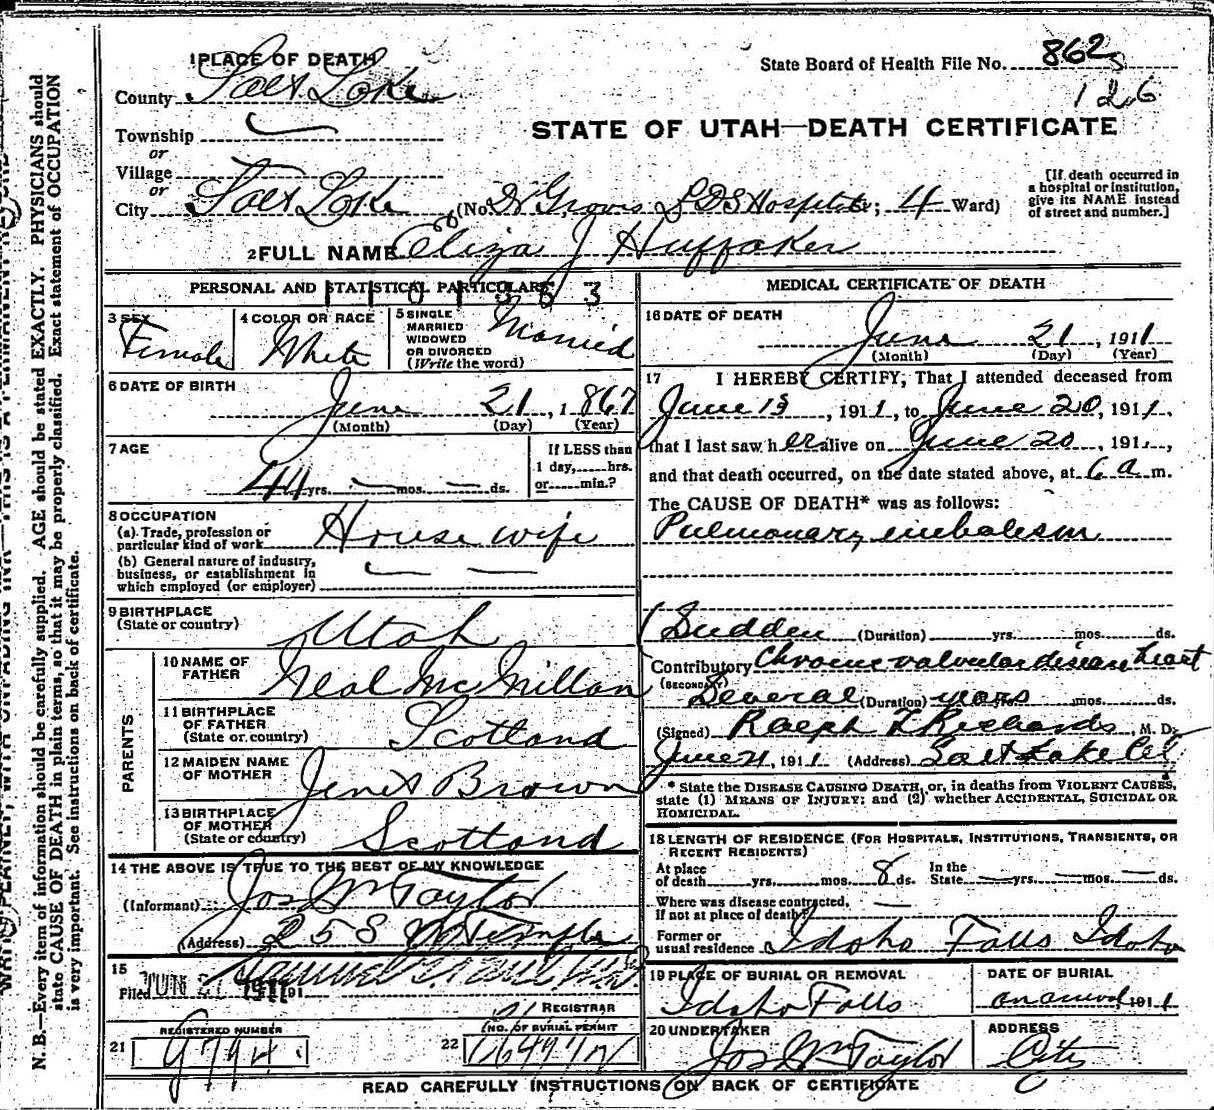 1 PLACE OF DEATH
State Board of Health File No. 862
126
County Salt Lake
STATE OF UTAH—DEATH CERTIFICATE
Township
or
Village
or
City Salt Lake (No. Dr Groves LDS Hospital; 4 Ward)
[If death occurred in
a hospital or institution,
give its NAME instead
of street and number.]
2 FULL NAME Eliza J Huffaker
PERSONAL AND STATISTICAL PARTICULARS
3 SEX
Female
4 COLOR OR RACE
White
5 SINGLE
MARRIED
WIDOWED
OR DIVORCED
(Write the word)
Married
6 DATE OF BIRTH
June 21, 1867
(Month) (Day) (Year)
7 AGE
44 yrs. — mos. — ds.
If LESS than
1 day,......hrs.
or......min.?
8 OCCUPATION
(a) Trade, profession or
particular kind of work House wife
(b) General nature of industry,
business, or establishment in
which employed (or employer)
9 BIRTHPLACE
(State or country)
Utah
PARENTS
10 NAME OF
FATHER
Neal McMillan
11 BIRTHPLACE
OF FATHER
(State or country)
Scotland
12 MAIDEN NAME
OF MOTHER
Jenet Brown
13 BIRTHPLACE
OF MOTHER
(State or country)
Scotland
14 THE ABOVE IS TRUE TO THE BEST OF MY KNOWLEDGE
(Informant) Jos Wm Taylor
(Address) 25 S W Temple
15
Filed JUN 21 1911 191
REGISTRAR
REGISTERED NUMBER
21
(NO. OF BURIAL PERMIT
22
MEDICAL CERTIFICATE OF DEATH
16 DATE OF DEATH
June 21, 1911
(Month) (Day) (Year)
17 I HEREBY CERTIFY, That I attended deceased from
June 13, 1911, to June 20, 1911,
that I last saw her alive on June 20, 191
and that death occurred, on the date stated above, at 6 a m.
The CAUSE OF DEATH* was as follows:
Pulmonary embolism
Sudden (Duration) yrs. mos. ds.
Contributory Chronic valvular disease heart
(SECONDARY)
Several (Duration) years mos. ds.
(Signed) Ralph T Richards, M. D.
June 21, 1911 (Address) Salt Lake City
* State the DISEASE CAUSING DEATH, or, in deaths from VIOLENT CAUSES,
state (1) MEANS OF INJURY; and (2) whether ACCIDENTAL, SUICIDAL OR
HOMICIDAL.
18 LENGTH OF RESIDENCE (FOR HOSPITALS, INSTITUTIONS, TRANSIENTS, OR
RECENT RESIDENTS)
At place
of death yrs. mos. 8 ds. In the
State — yrs. — mos. — ds.
Where was disease contracted,
if not at place of death?
Former or
usual residence Idaho Falls Idaho
19 PLACE OF BURIAL OR REMOVAL
Idaho Falls
DATE OF BURIAL
on arrival 1911
20 UNDERTAKER
Jos Wm Taylor
ADDRESS
City
READ CAREFULLY INSTRUCTIONS ON BACK OF CERTIFICATE
N. B.—Every item of information should be carefully supplied. AGE should be stated EXACTLY. PHYSICIANS should
state CAUSE OF DEATH in plain terms, so that it may be properly classified. Exact statement of OCCUPATION
is very important. See instructions on back of certificate.